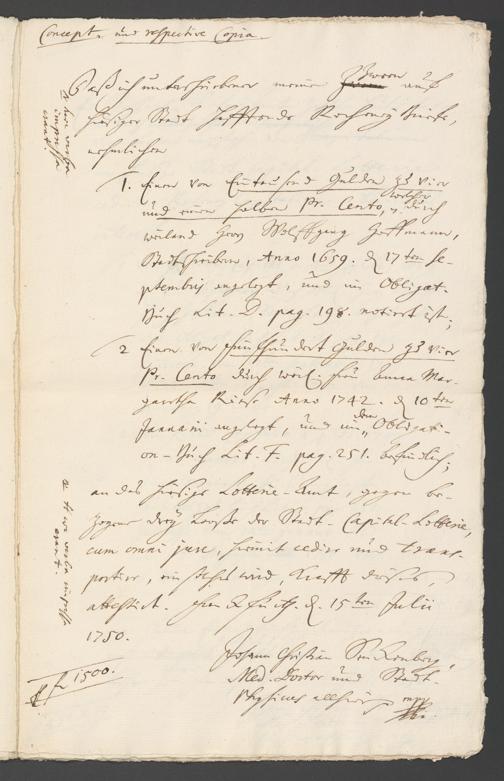 Concept. und respective Copia.
Daß ich unterschriebener meine zween auf
hiesiger Stadt hafftende Rechney Briefe,
nehmlichen
1. Einen von Eintausend Gulden zu vier
und einen halben Pr. Cento, welcher durch
weiland Herrn Wolffgang Hoffmann,
Stadtschreibern, Anno 1659. d. 17ten Se-
ptembris angelegt, und im Obligat.
Buch Lit. D. pag. 198. notirt ist;
2 Einen von fünfhundert Gulden zu vier
Pr. Cento durch weil. Frau Anna Mar-
garetha Anno 1742. d. 10ten
Januarii angelegt, und in dem Obligati-
on-Buch Lit. F. pag. 251. befindlich;
an das hiesige Lotterie-Amt, gegen be-
zogene drey Looße der Stadt-Capital-Lotterie,
cum omni jure, hiermit cedire und trans-
portire, ein solches wird, Krafft dieses,
attestirt. d. 15ten Julii
1750.
Johann Christian Senckenberg,
Med. Doctor und Stadt-
Physicus allhier
mppr
f 1500.